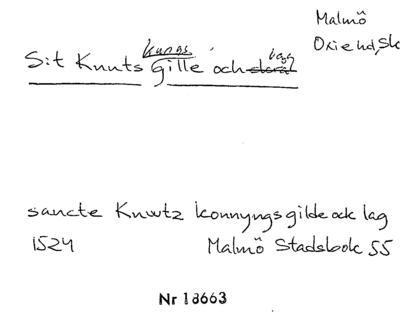 Malmö
Oxie hd, Sk
kungs lag
S:t Knuts Gille och skrå
sancte Knwtz konnyngs gilde ock lag
1524 Malmö Stadsbok 55
Nr 18663